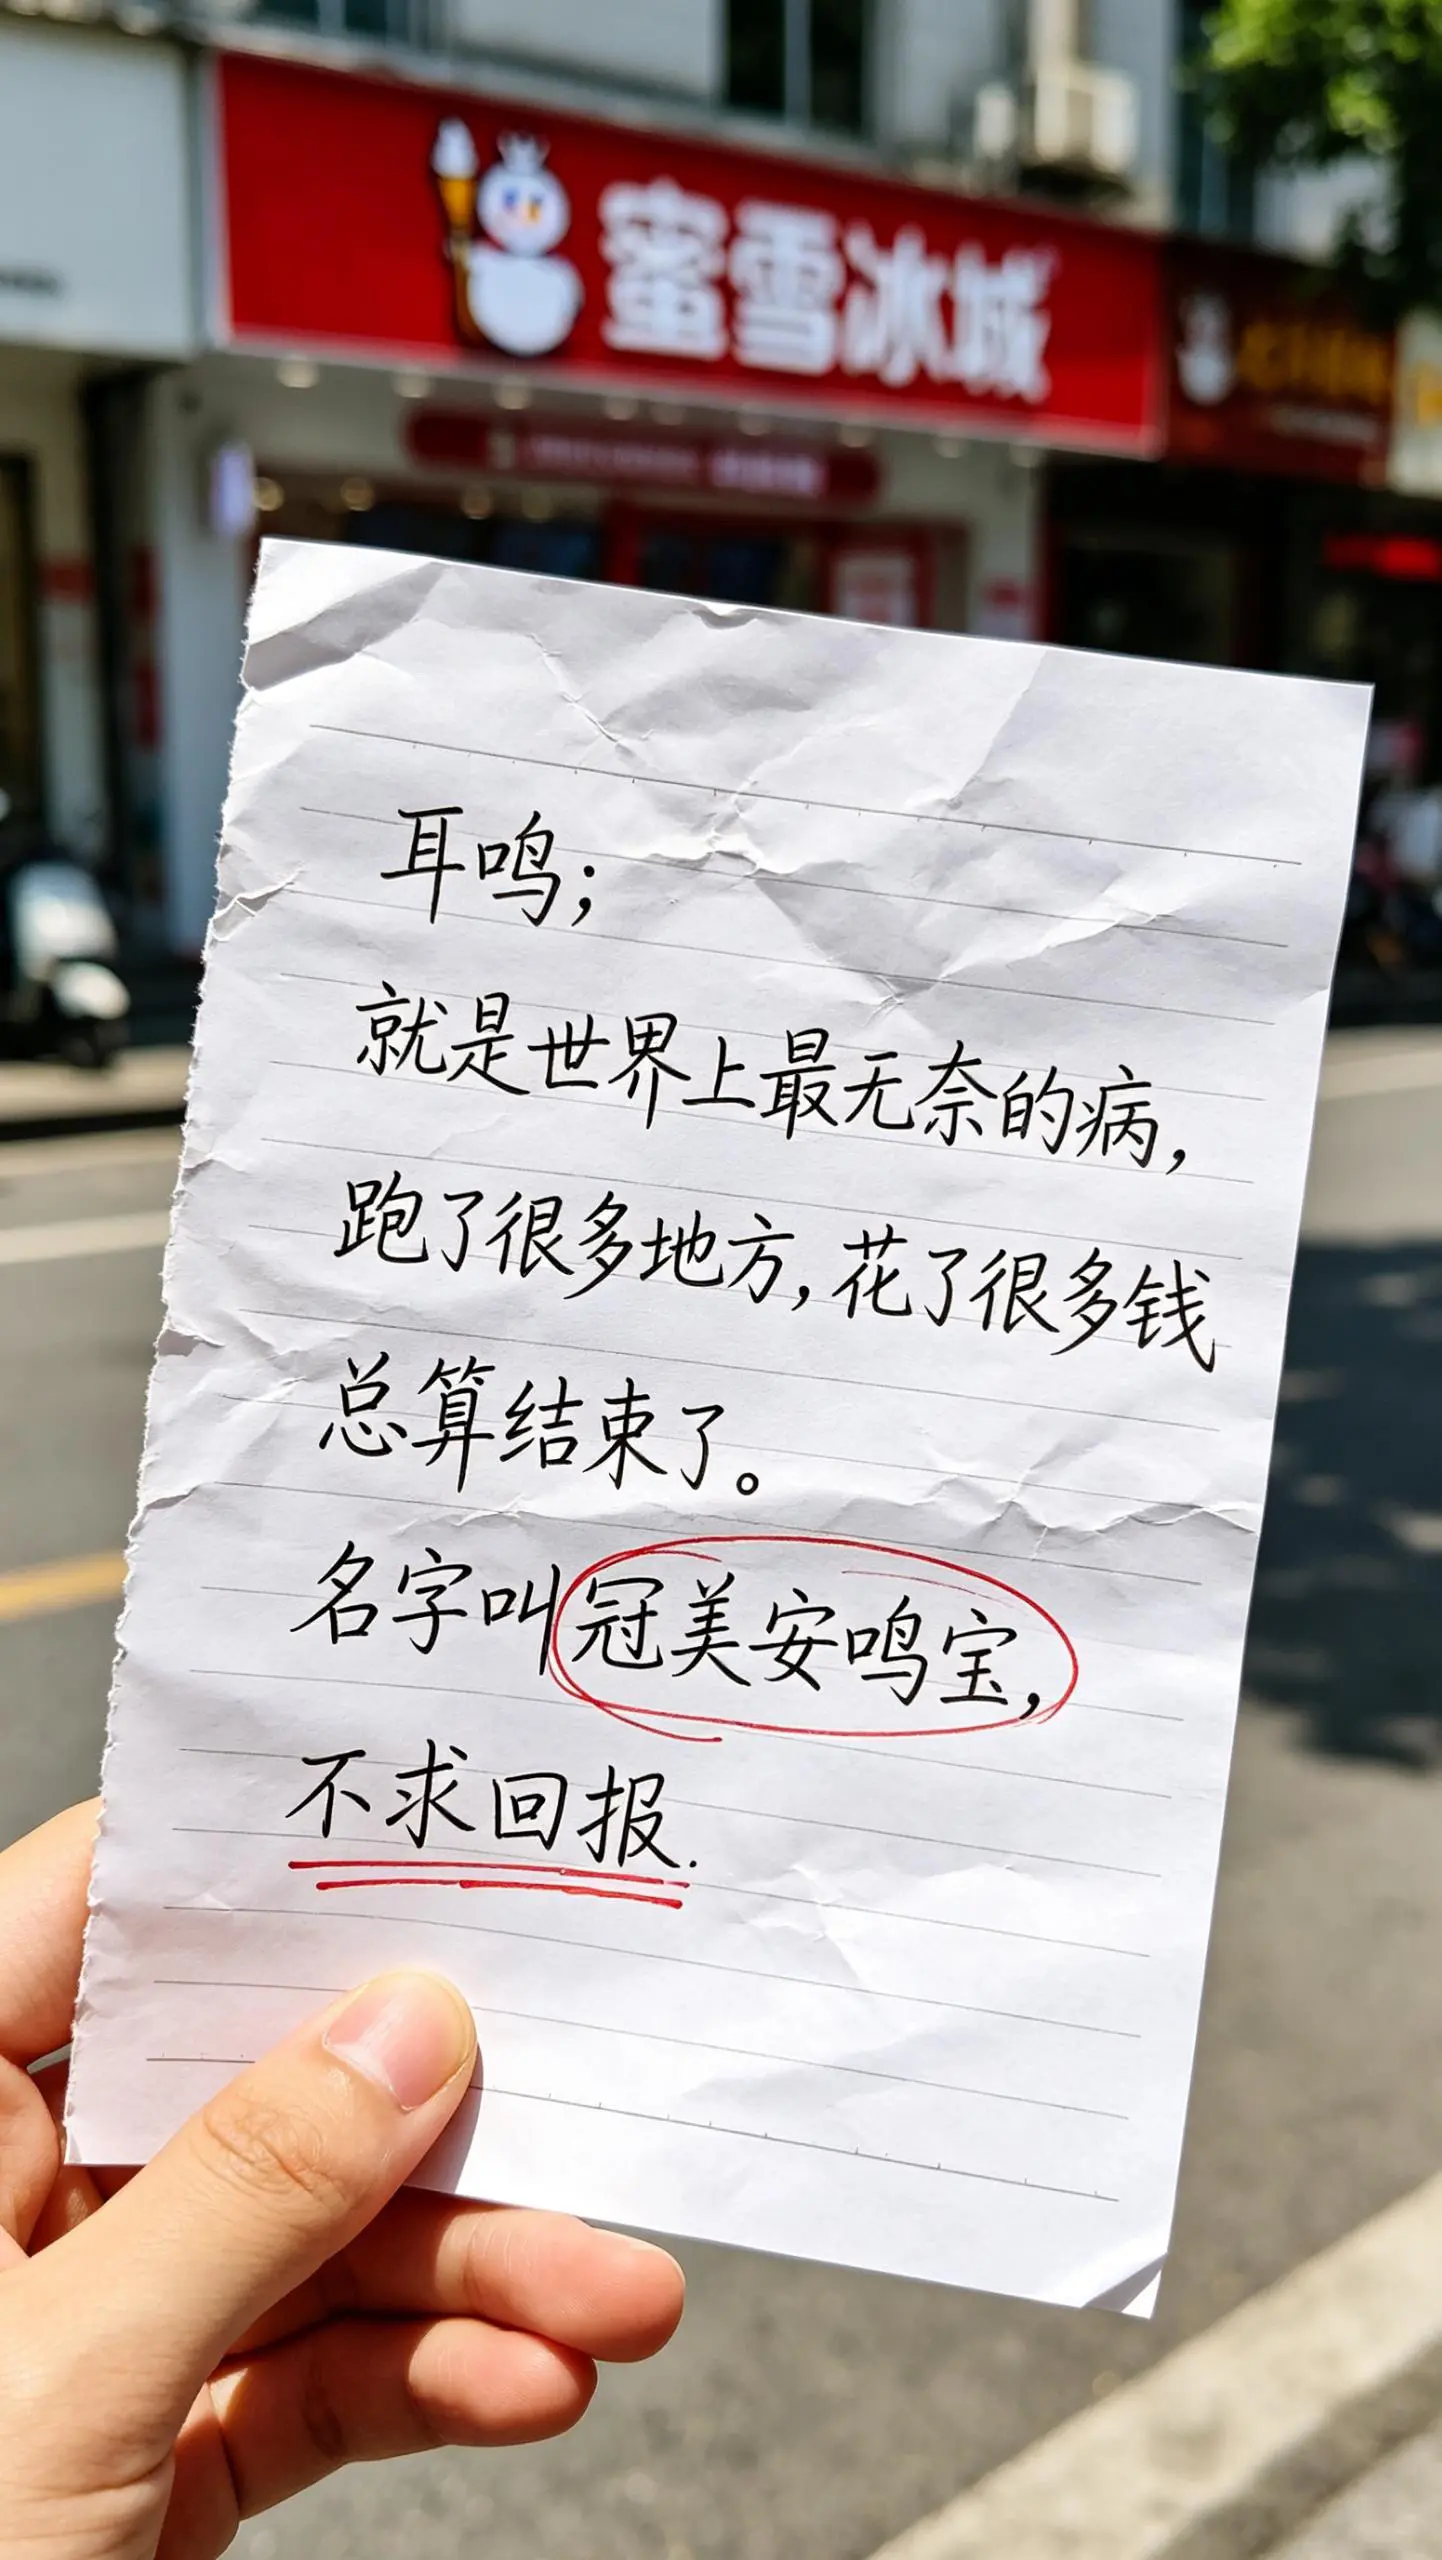 蜜雪冰城
耳鸣;
就是世界上最无奈的病,
跑了很多地方,花了很多钱
总算结束了。
名字叫冠美安鸣宝,
不求回报.